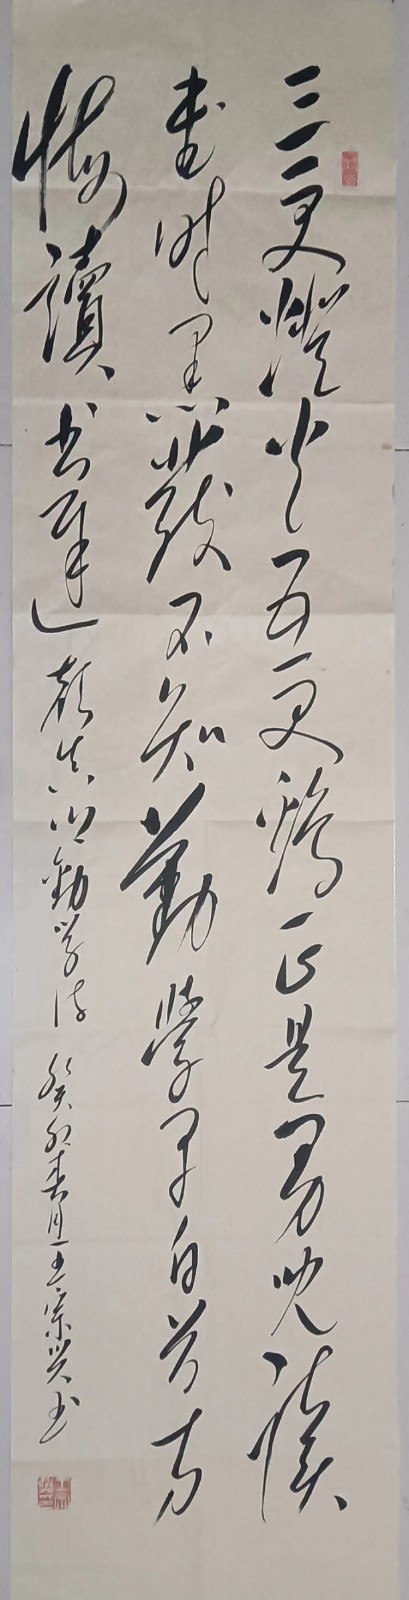 三更燈火五更鷄正是男兒讀
書時黑髮不知勤學早白首方
悔讀書遲 顏真卿勸学诗 癸卯春月王宗兴书